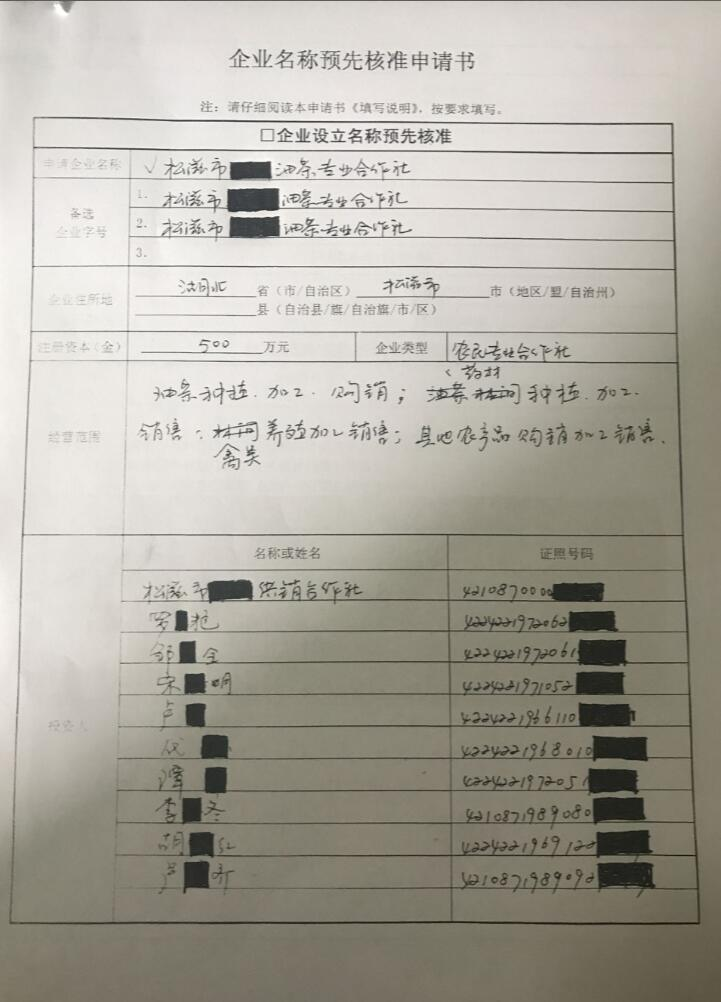 企业名称预先核准申请书
注：请仔细阅读本申请书《填写说明》，按要求填写。
□企业设立名称预先核准
申请企业名称 √松滋市 油茶专业合作社
备选企业字号
1. 松滋市 油茶专业合作社
2. 松滋市 油茶专业合作社
3.
企业住所地 湖北 省（市/自治区） 松滋市 市（地区/盟/自治州）
县（自治县/旗/自治旗/市/区）
注册资本（金） 500 万元 企业类型 农民专业合作社
药材
经营范围 油茶种植.加工.购销；种植.加工.
销售；养殖加工销售；其他农产品购销加工销售.
禽类
投资人 名称或姓名 证照号码
松滋市 供销合作社 4210870000
罗 4224221972062
邹 全 4224221972061
宋 明 4224221971052
卢 4224221966110
4224221968010
谭 422422197205
李 冬 4210871989080
胡 红 4224221969122
卢 齐 4210871989092